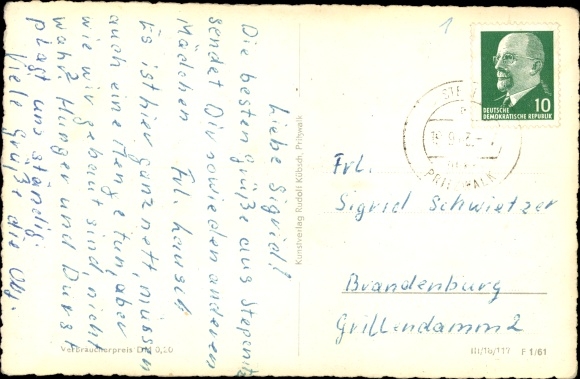 Liebe Sigrid!
Die besten Grüße aus Stepenitz
sendet Dir sowie den anderen
Mädchen Frl. Lausch
Es ist hier ganz nett, müssen
auch eine Menge tun, aber
wie wir gebaut sind, nicht
wahr? Hunger und Durst
plagt uns ständig.
Viele Grüße die
Kunstverlag Rudolf Kübsch, Pritzwalk
Verbraucherpreis DM 0,20
1
DEUTSCHE
DEMOKRATISCHE REPUBLIK
10
PRITZWALK
Frl.
Sigrid Schwietzer
Brandenburg
Grillendamm 2
III/18/117 F 1/61